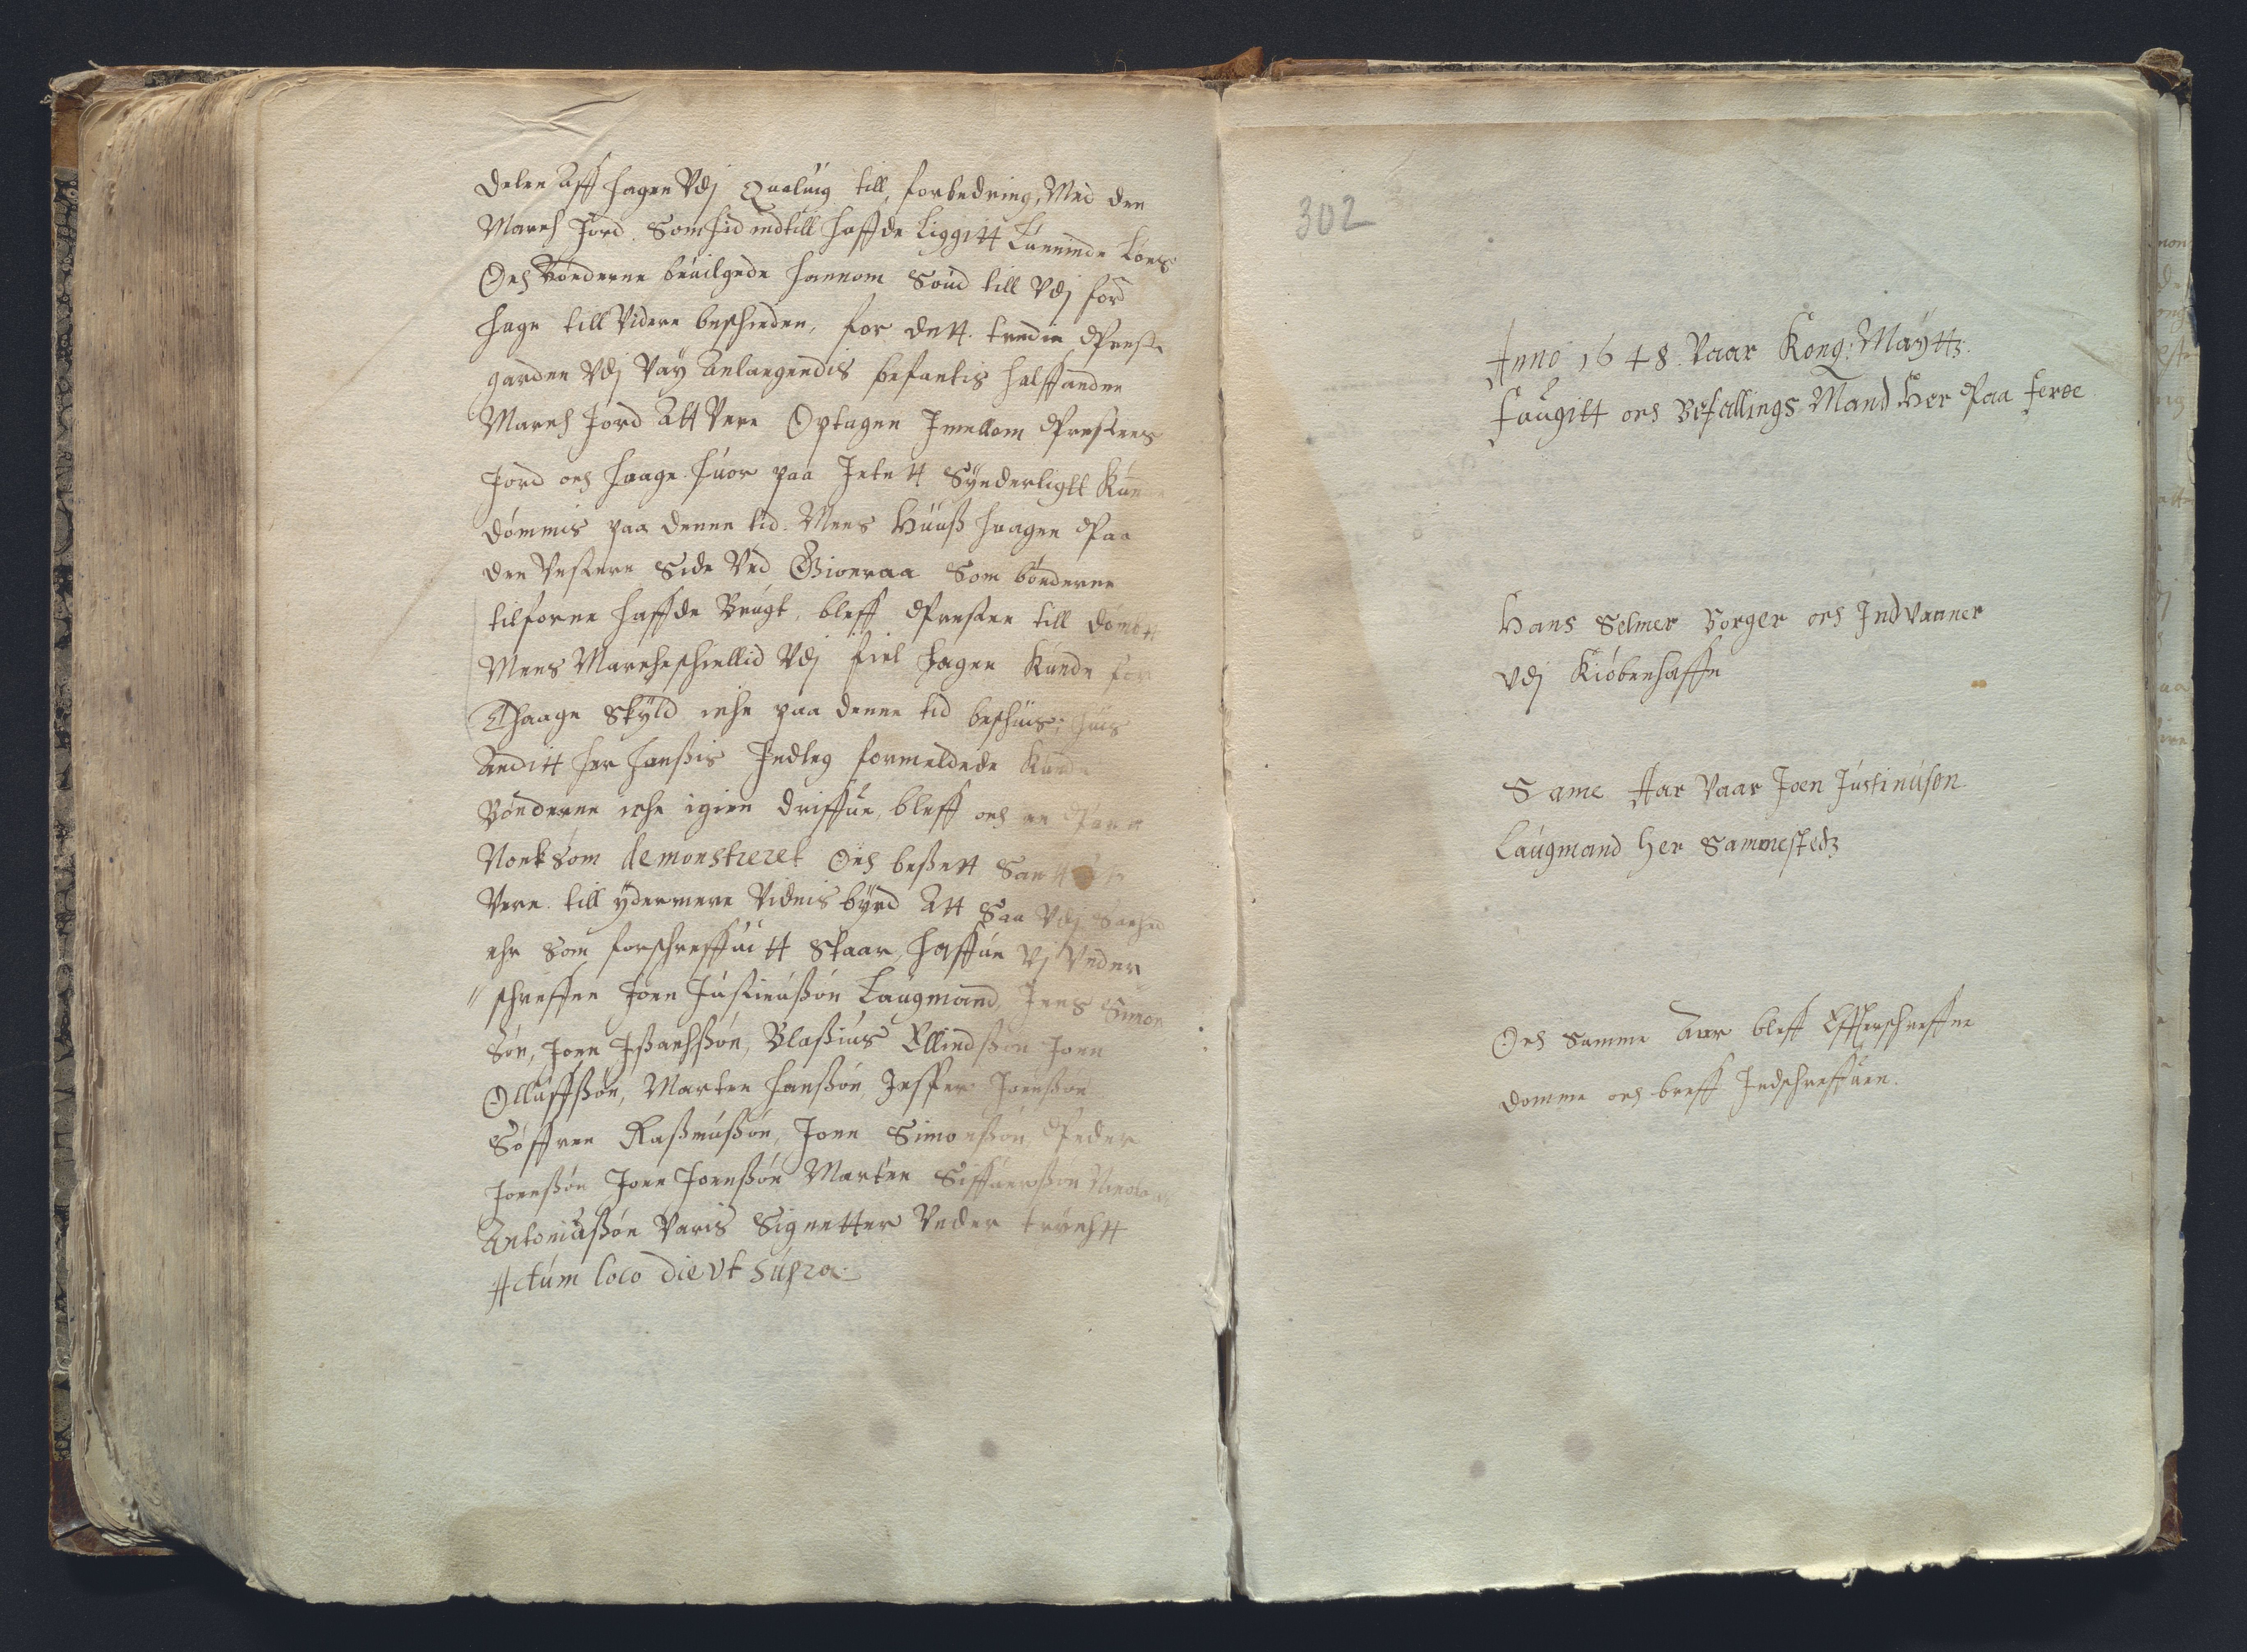 delen Aff hagen Vdj Qualuig till, forbedring, Med den
March Jord. Som hid indtill haffde Liggitt Lunninde Lóens
Och Bónderne béuilgede hannom Soud till Vdj for
hage till Videre beschieden, for dett. tredie Preste
garden Vdj Vaÿ Anlangendis befantis halffanden
March Jord Att Vere Optagen Jmellom Prestens
Jord och haage huor paa Jntett Sÿnderligtt Kunde
dómmis paa denne tid. Mens Húúß haagen Paa
den Vestere Side Ved Gioeraa Som bónderne
tilforne haffde Brúgt, bleff Presten till dómbtt
Mens Marcheschiellid Vdj fiel hagen Kúnde for
Thaage Skÿld iche paa denne tid beschúis; húis
Anditt her Hanßis Indleg formeldede Kunde
Bónderne iche igien driffúe, bleff och en Part
Noeksom demonstreret Och beßett Santt at
Vere. till ÿdermere Vidnis bÿrd Att Saa Vdj Sanhed
ehr Som forschreffúitt Staar, haffúe Vj Vnder
" schreffne Joen Jústinúßón Laúgmand, Jens Simon
ßón, Joen Jßachßón, Blaßiús Ellindßón Joen
Ollúffßón, Marten Hanßón, Jesper Joenßón
Sóffren Raßmúßón, Joen Simonßón, Peder
Joenßón Joen Joenßón Marten Siffúerßón Nicolai
Antoniúßón Varis Signetter Vnder trúchtt
Actúm loco die Vt Súpra
302
Anno 1648. Vaar Kong: Maÿttz.
faúgitt och Befallings Mand Her Paa feroe
Hans Selmer Borger och Indvaaner
Vdj Kióbenhaffn
Same Aar Vaar Joen Jústinúsón
Laúgmand Her Sammestedz
Och Samme Aar bleff Effterschreffne
domme och breff Indschreffúen.